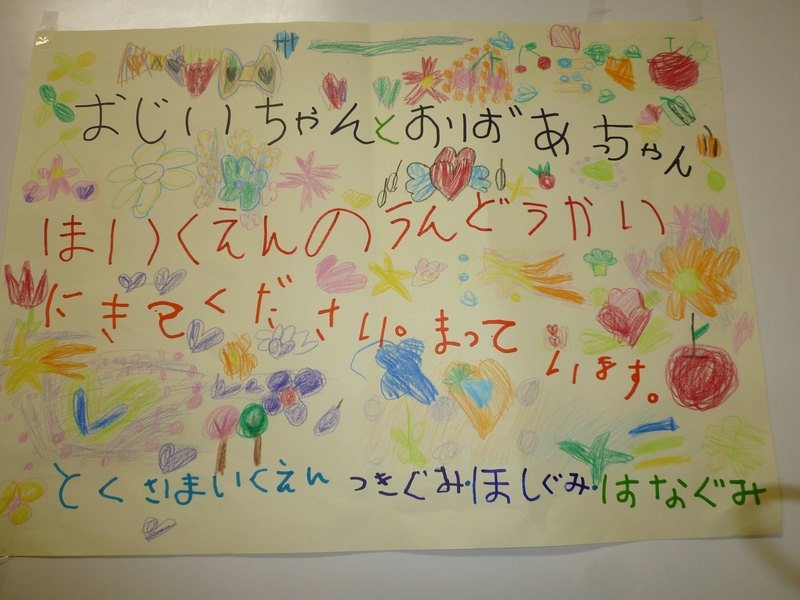 おじいちゃんとおばあちゃん
ほいくえんのうんどうかい
にきてください。まって
います。
とくさほいくえん つきぐみ・ほしぐみ・はなぐみ